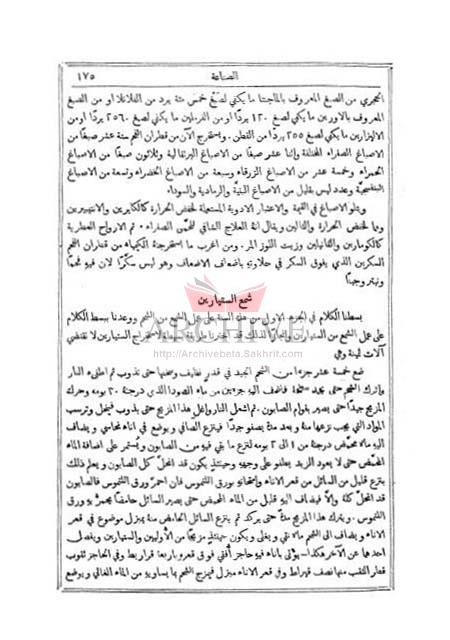 الصناعة ١٧٥
الحجري من الصبغ المعروف بالماجنتا ما يكفي لصبغ خمس مئة يرد من الفلانلا او من الصبغ
المعروف بالاورين ما يكفي لصبغ ١٢٠ يردًا او من القرملين ما يكفي لصبغ ٢٥٦٠ يردًا او من
الاليزارين ما يكفي لصبغ ٢٥٥ يردًا من القطن. ويستخرج الآن من قطران الفحم ستة عشر صبغًا من
الاصباغ الصفراء المختلفة واثنا عشر صبغًا من الاصباغ البرتقالية وثلاثون صبغًا من الاصباغ
الحمراء وخمسة عشر من الاصباغ الزرقاء وسبعة من الاصباغ الخضراء وتسعة من الاصباغ
البنفسجية وعدد ليس بقليل من الاصباغ البنية والرمادية والسوداء
ويتلو الاصباغ في القيمة والاعتبار الادوية المستعملة لخفض الحرارة كالكايرين والانتيبيرين
وما لخفض الحرارة والثالين ويقال انهُ العلاج الشافي للحمى الصفراء. ثم الارواح العطرية
كالكومارين والفانيلين وزيت اللوز المر. ومن اغرب ما استخرجهُ الكيمياء من قطران الفحم
السكرين الذي يفوق السكر في حلاوتهِ باضعاف الاضعاف وهو ليس سكّرًا لان فيهِ فحمًا
ونيتروجينًا
شمع الستيارين
بسطنا الكلام في الجزء الاول من هذه السنة على عمل الشمع من الشحم ووعدنا ببسط الكلام
على عمل الشمع من الستيارين وانجازًا لذلك قد اخترنا طريقة بسيطة لاستخراج الستيارين لا تقتضي
آلات ثمينة وهي
ضع خمسة عشر جزءًا من الشحم الجيد في قدر نظيف وحمها حتى تذوب ثم اطفئ النار
واترك الشحم حتى يجمد فاضف اليهِ جزئين من ماء الصودا الذي درجتهُ ٣٠ بومه وحرك
المزيج جيدًا حتى يصير بقوام الصابون. ثم اشعل النار واغلِ هذا المزيج حتى يذوب فينحل وترسب
المواد التي يجب نزعها منهُ وبعد مدة يصفو جيدًا فينزع الصافي ويوضع في اناء نحاسي ويضاف
اليهِ ماء محمض درجتهُ من ١ الى ٢ بومه لنزع ما بقي فيهِ من الصابون ويُستمر على اضافة الماء
المحمض حتى لا يعود الزبد يعلو على وجههِ وحينئذٍ يكون قد انحلّ كل الصابون ويعلم ذلك
بنزع قليل من السائل من قعر الاناء وامتحانهِ بورق اللتموس فان احمرّ ورق اللتموس فالصابون
قد انحل كلهُ والاّ فيضاف اليهِ قليل من الماء المحمض حتى يصير السائل حامضًا يحمرّ بهِ ورق
اللتموس. ويترك هذا المزيج مدة حتى يركد ثم ينزع السائل الحامض منهُ بمبزل موضوع في قعر
الاناء ويضاف الى الشحم ماء نقي ويغلى ويكون حينئذٍ مزيجًا من الأوليين والستيارين ويفصل
احدهما عن الآخر هكذا- يؤتى باناء فيهِ حاجز أفقي فوق قعرهِ باربعة قراريط وفي الحاجز ثقوب
قطر الثقب منها نصف قيراط وفي قعر الاناء مبزل فيمزج الشحم بما يساويهِ من الماء الغالي ويوضع
ARCHIVE
http://Archivebeta.Sakhrit.com